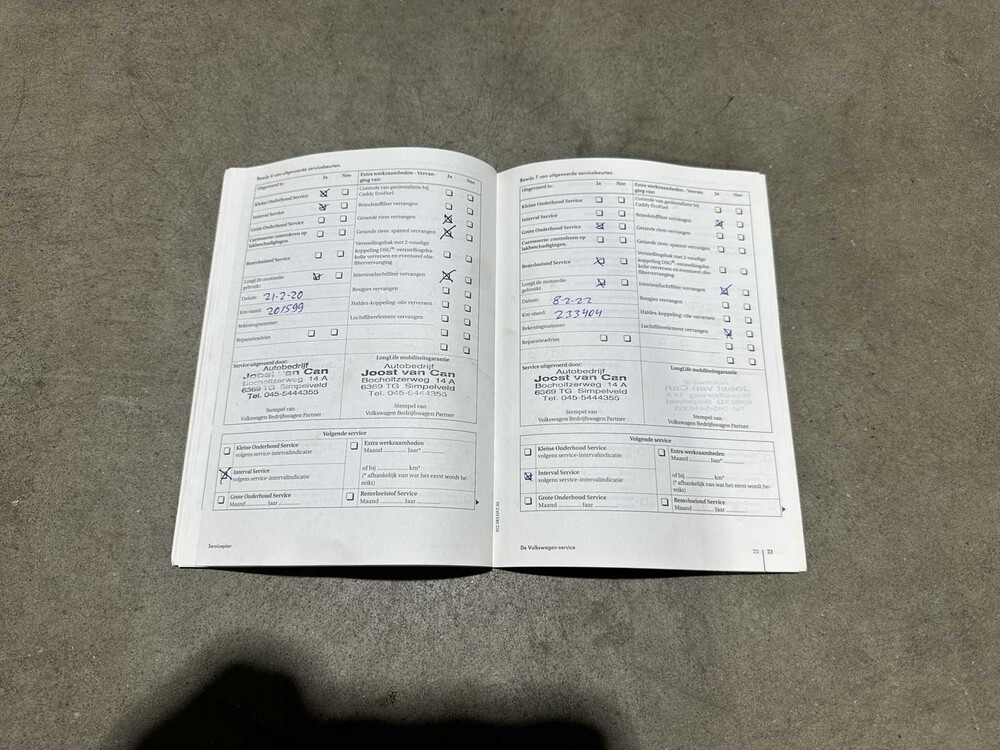 Bewijs 6 van uitgevoerde servicebeurten
Uitgevoerd is:
Ja
Nee
Kleine Onderhoud Service
Interval Service
Grote Onderhoud Service
Carrosserie: controleren op
lakbeschadigingen.
Remvloeistof Service
LongLife motorolie
gebruikt
Datum: 21-2-20
Km-stand: 201599
Rekeningnummer:
Reparatieadvies
Extra werkzaamheden - Vervan-
ging van:
Ja
Nee
Controle van gasinstallatie bij
Caddy EcoFuel
Brandstoffilter vervangen
Getande riem vervangen
Getande riem: spanrol vervangen
Versnellingsbak met 2-voudige
koppeling DSG®: versnellingsba-
kolie verversen en eventueel olie-
filtervervanging
Interieurluchtfilter vervangen
Bougies vervangen
Haldex-koppeling: olie verversen
Luchtfilterelement vervangen
Service uitgevoerd door:
Autobedrijf
Joost van Can
Bocholtzerweg 14 A
6369 TG Simpelveld
Tel. 045-5444355
Stempel van
Volkswagen Bedrijfswagen Partner
LongLife mobiliteitsgarantie
Autobedrijf
Joost van Can
Bocholtzerweg 14 A
6369 TG Simpelveld
Tel. 045-5444355
Stempel van
Volkswagen Bedrijfswagen Partner
Volgende service
Kleine Onderhoud Service
volgens service-intervalindicatie
Interval Service
volgens service-intervalindicatie
Grote Onderhoud Service
Maand Jaar
Extra werkzaamheden
Maand Jaar*
of bij km*
(* afhankelijk van wat het eerst wordt be-
reikt)
Remvloeistof Service
Maand Jaar
Serviceplan
Bewijs 7 van uitgevoerde servicebeurten
Uitgevoerd is:
Ja
Nee
Kleine Onderhoud Service
Interval Service
Grote Onderhoud Service
Carrosserie: controleren op
lakbeschadigingen.
Remvloeistof Service
LongLife motorolie
gebruikt
Datum: 8-2-22
Km-stand: 233404
Rekeningnummer:
Reparatieadvies
Extra werkzaamheden - Vervan-
ging van:
Ja
Nee
Controle van gasinstallatie bij
Caddy EcoFuel
Brandstoffilter vervangen
Getande riem vervangen
Getande riem: spanrol vervangen
Versnellingsbak met 2-voudige
koppeling DSG®: versnellingsba-
kolie verversen en eventueel olie-
filtervervanging
Interieurluchtfilter vervangen
Bougies vervangen
Haldex-koppeling: olie verversen
Luchtfilterelement vervangen
Service uitgevoerd door:
Autobedrijf
Joost van Can
Bocholtzerweg 14 A
6369 TG Simpelveld
Tel. 045-5444355
Stempel van
Volkswagen Bedrijfswagen Partner
LongLife mobiliteitsgarantie
Stempel van
Volkswagen Bedrijfswagen Partner
Volgende service
Kleine Onderhoud Service
volgens service-intervalindicatie
Interval Service
volgens service-intervalindicatie
Grote Onderhoud Service
Maand Jaar
Extra werkzaamheden
Maand Jaar*
of bij km*
(* afhankelijk van wat het eerst wordt be-
reikt)
Remvloeistof Service
Maand Jaar
De Volkswagen-service
22 23